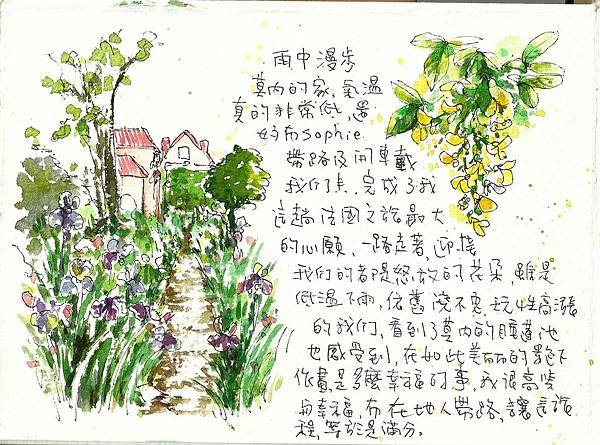 雨中漫步
莫內的家,氣溫
真的非常低,還
好有sophie
帶路及開車載
我們去,完成了我
這趟法國之旅最大
的心願,一路走著,迎接
我們的都是怒放的花朵,雖是
低溫下雨,依舊澆不息玩性高漲
的我們,看到了莫內的睡蓮池
也感受到,在如此美丽的景下
作畫是多麼幸福的事,我很高興
與幸福,有在地人帶路,讓這旅
程,等於是滿分。